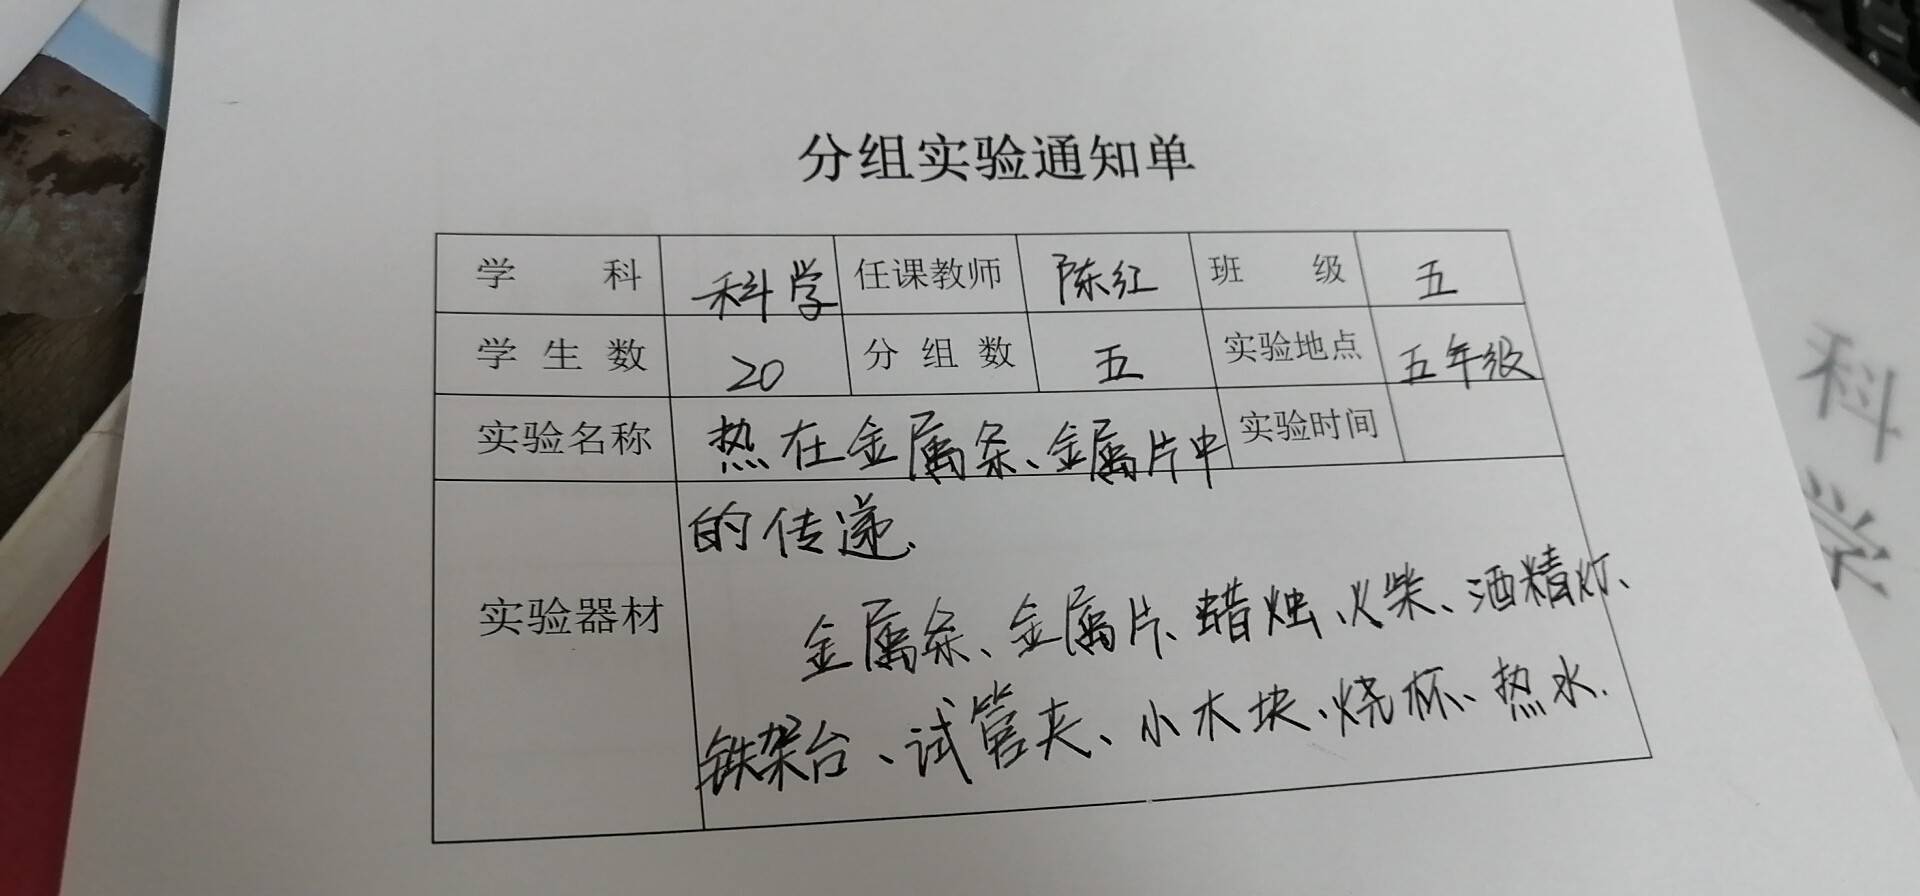 分组实验通知单
学科 科学 任课教师 陈红 班级 五
学生数 20 分组数 五 实验地点 五年级
实验名称 热在金属条、金属片中 实验时间
的传递.
实验器材
金属条、金属片、蜡烛、火柴、酒精灯、
铁架台、试管夹、小木块、烧杯、热水.
科学